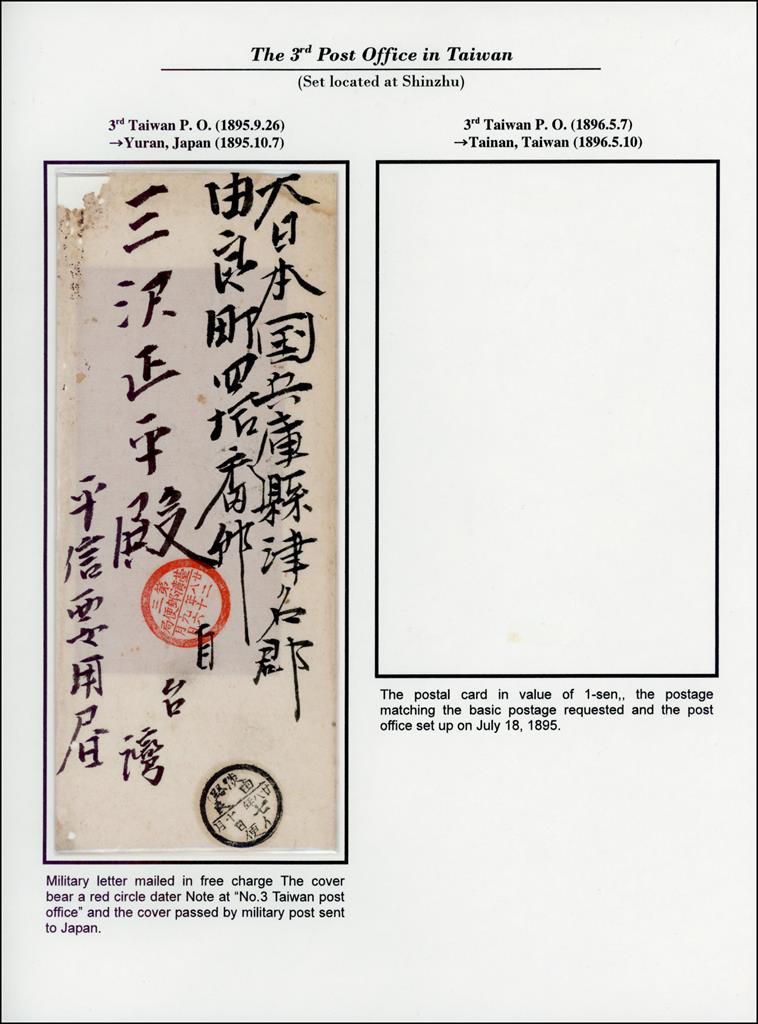 The 3rd Post Office in Taiwan
(Set located at Shinzhu)
3rd Taiwan P. O. (1895.9.26)
→Yuran, Japan (1895.10.7)
大日本国兵庫縣津名郡
由良町四拾番邸
三沢正平殿
自台湾
平信要用届
廿八年
九月
二十六日
第三
郵便局
廿八年
十月
七日
Military letter mailed in free charge The cover
bear a red circle dater Note at “No.3 Taiwan post
office” and the cover passed by military post sent
to Japan.
3rd Taiwan P. O. (1896.5.7)
→Tainan, Taiwan (1896.5.10)
The postal card in value of 1-sen,, the postage
matching the basic postage requested and the post
office set up on July 18, 1895.